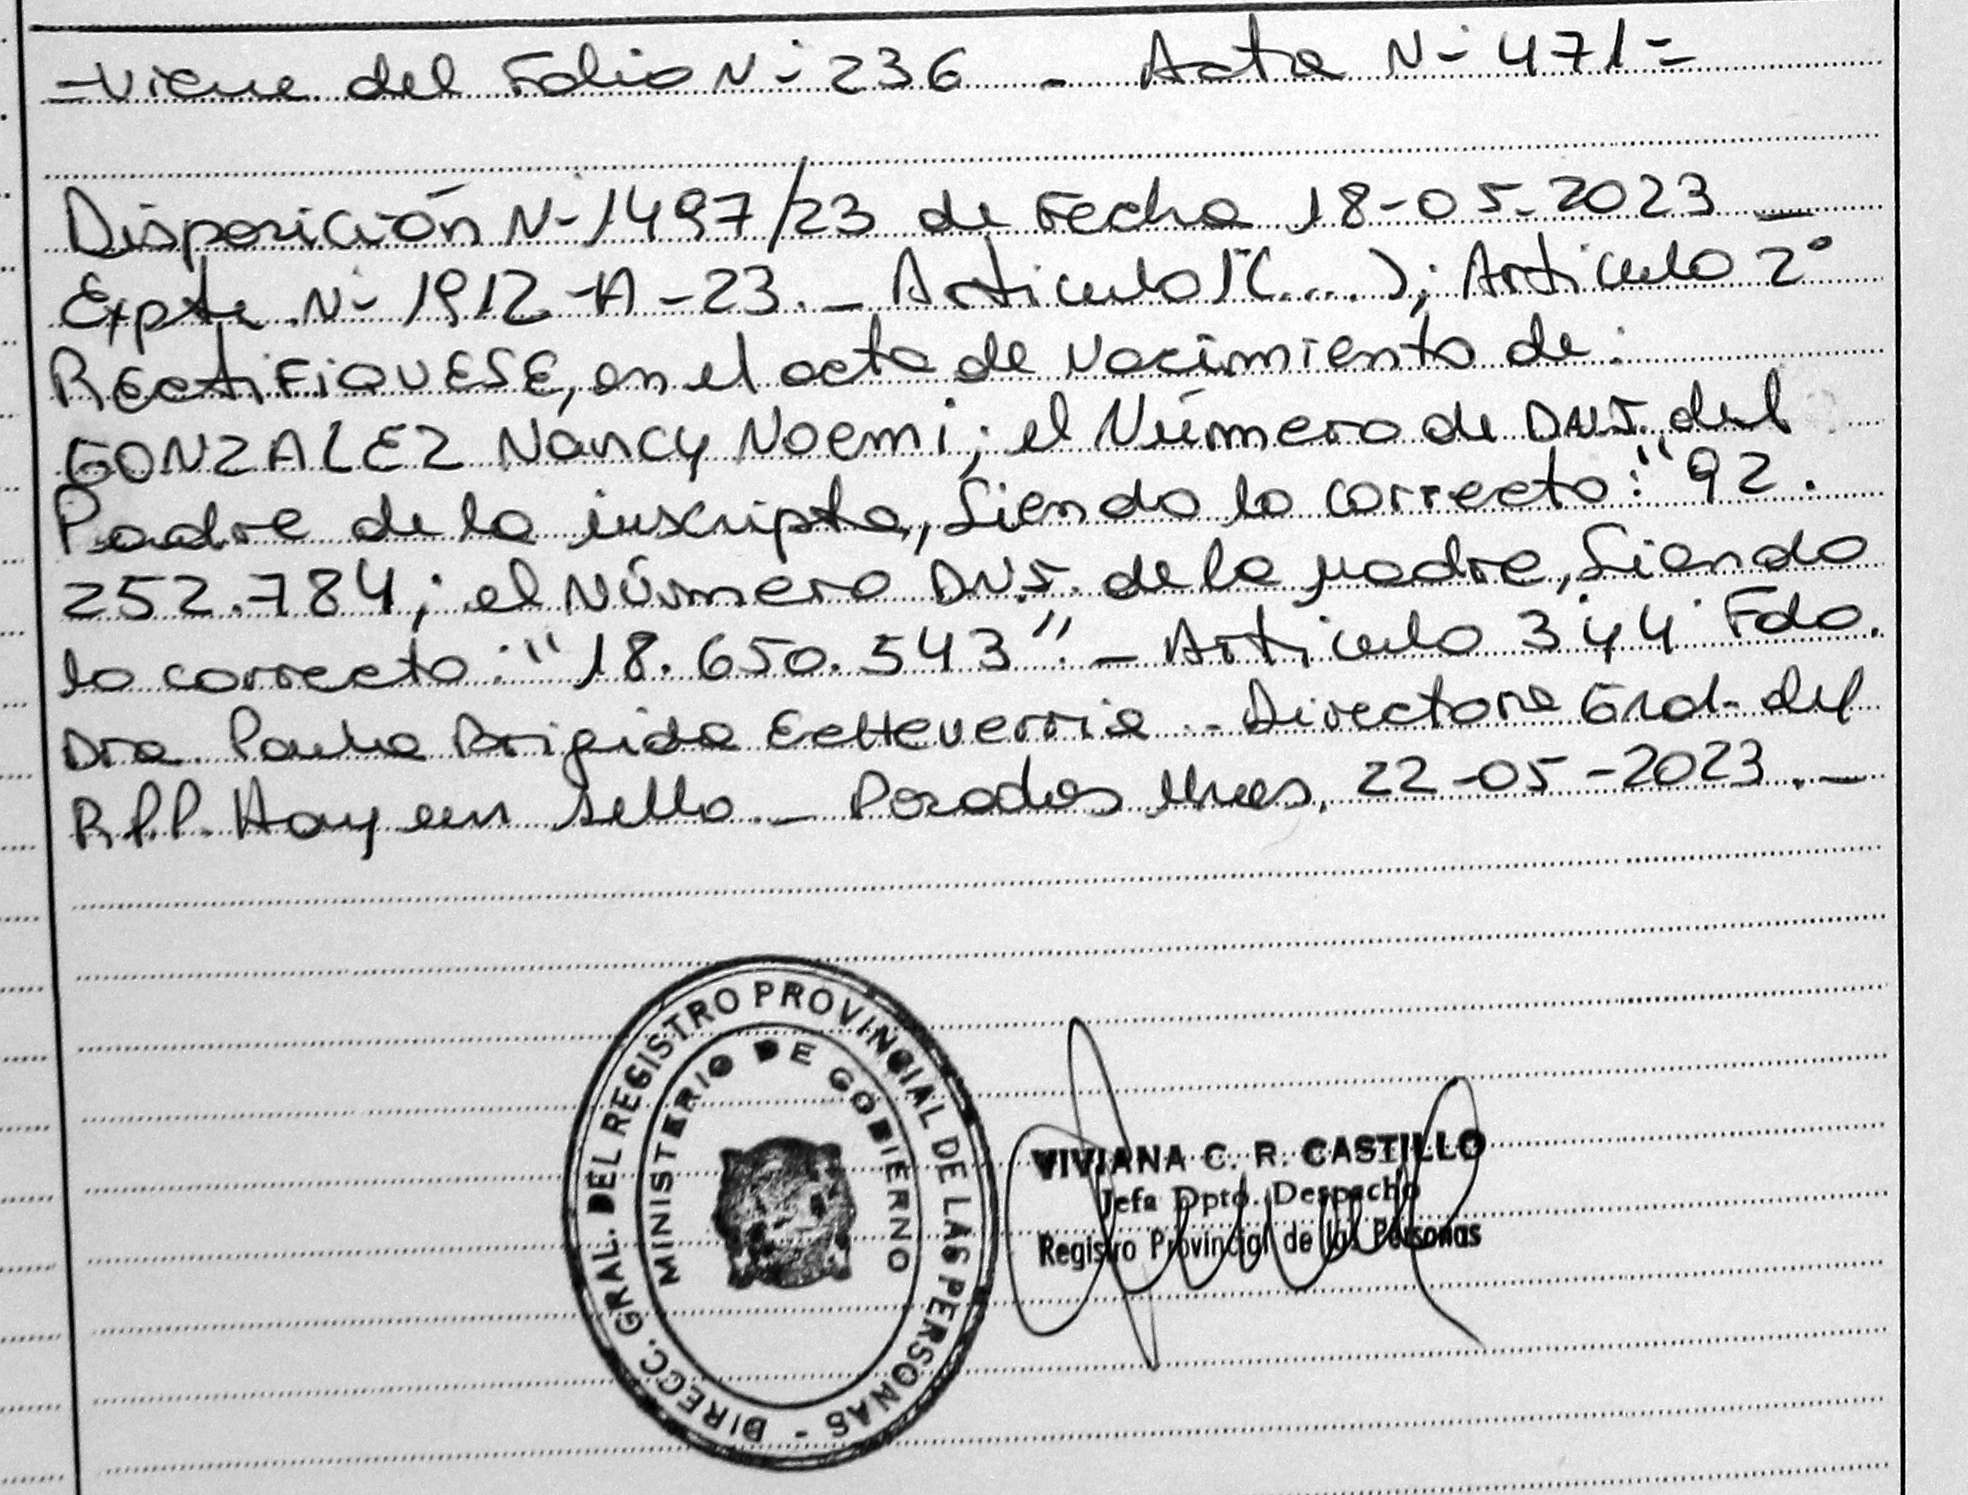 -Viene del Folio N- 236 - Acta N- 471=
Disposición N-1497/23 de Fecha 18-05-2023 -
Expte N- 1912-A-23.- Articulo 1°(....); Articulo 2°
RECtiFiQUESE, en el acta de Nacimiento de:
GONZALEZ Nancy Noemi; el Número de DNI. del
Padre de la inscripta, Siendo lo correcto: "92.
252.784; el Número DNI. de la Madre, Siendo
lo correcto: "18.650.543" - Articulo 3°y4° Fdo.
Dra. Paula Brigida Echeverria - Directora Gral- del
R.P.P. Hay un sello - Posadas Mnes, 22-05-2023.-
DIRECC. GRAL. DEL REGISTRO PROVINCIAL DE LAS PERSONAS -
MINISTERIO DE GOBIERNO
VIVIANA C. R. CASTILLO
Jefa Dpto. Despacho
Registro Provincial de las Personas